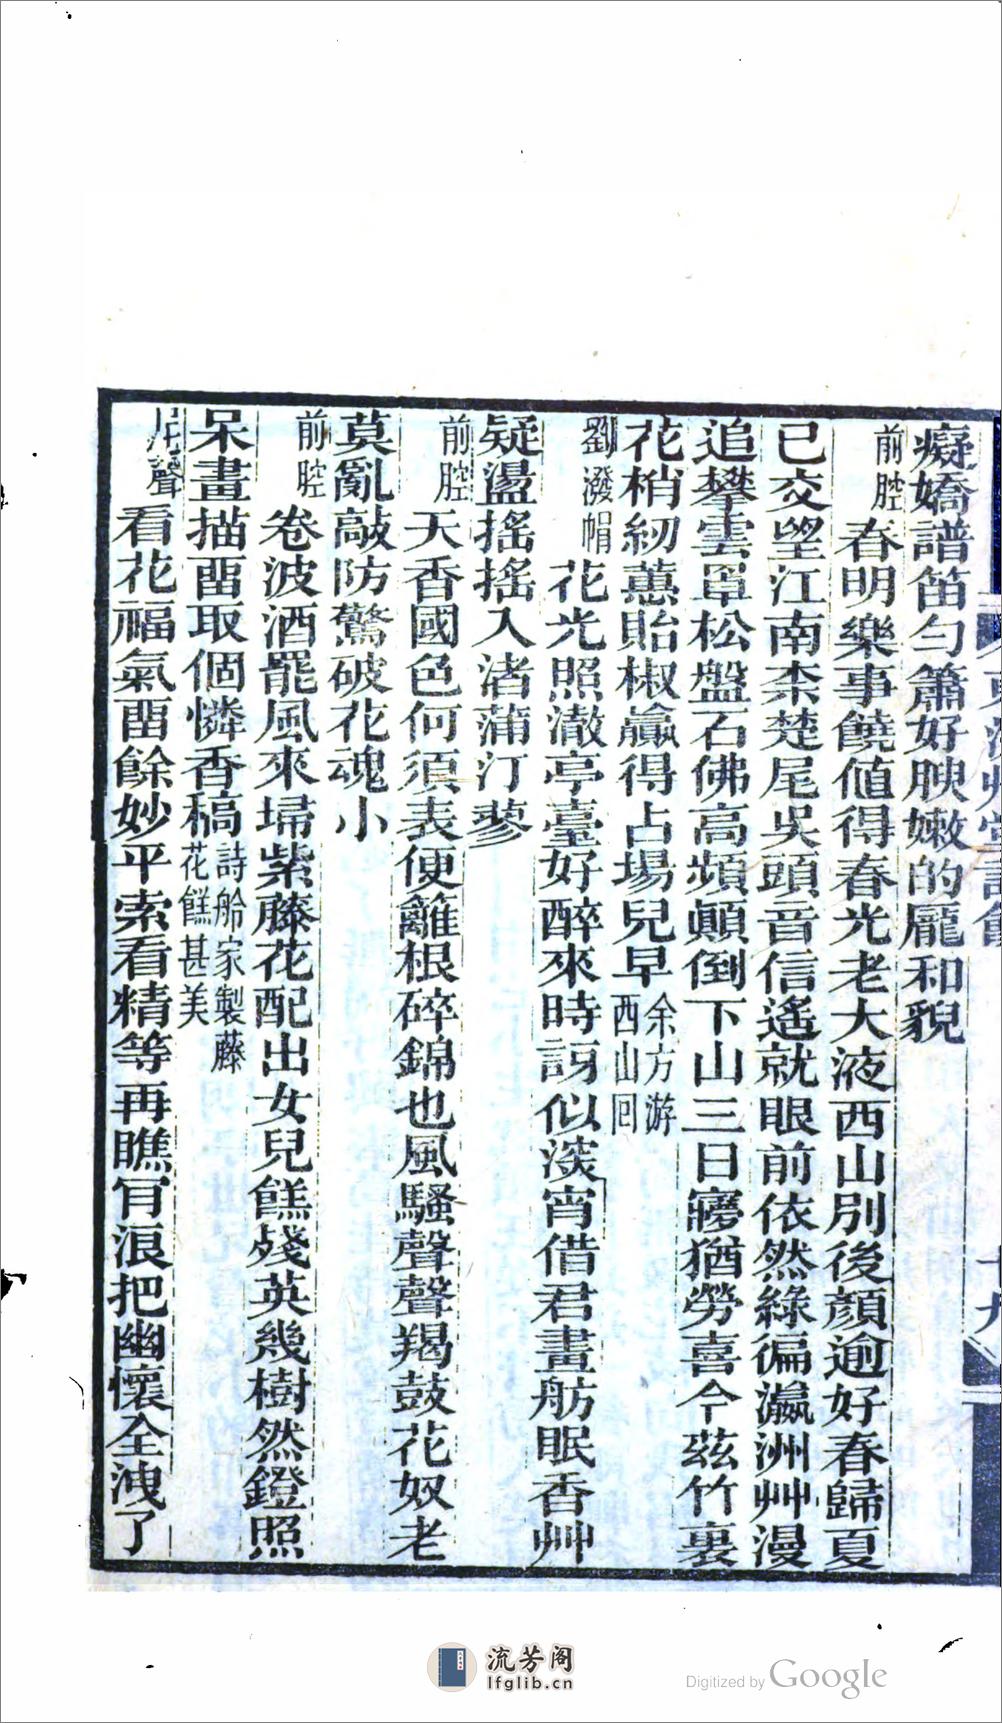 癡嬌譜笛勻簫好腴嫩的龎和貌
前腔 春明樂事饒値得春光老大液西山別後顏逾好春歸夏
已交望江南柰楚尾吳頭音信遙就眼前依然綠徧瀛洲艸漫
追攀雲罩松盤石佛高頻顚倒下山三日寱猶勞喜今茲竹裏
花梢紉蕙貽椒贏得占塲兒早余方游西山回
劉潑帽 花光照澈亭臺好醉來時訝似淡宵借君畫舫眠香艸
疑盪搖搖入渚蒲汀蓼
前腔 天香國色何須表便離根碎錦也風騷聲聲羯鼓花奴老
莫亂敲防驚破花魂小
前腔 卷波酒罷風來埽紫藤花配出女兒餻殘英幾樹然鐙照
呆畫描畱取個憐香稿詩舲家製藤花餻甚美
尾聲 看花福氣畱餘妙平索看精等再瞧肎浪把幽懷全洩了
十九
流芳阁
lfglib.cn
Digitized by Google